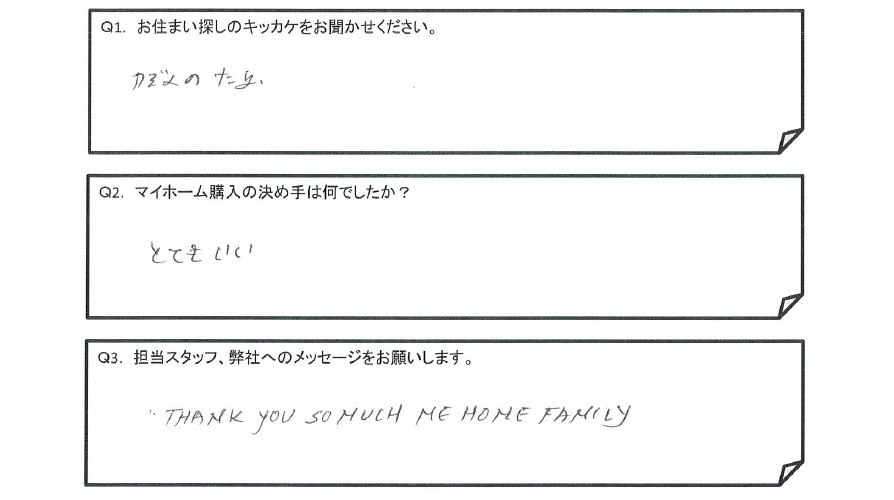 Q1. お住まい探しのキッカケをお聞かせください。
カゾクの ため.
Q2. マイホーム購入の決め手は何でしたか？
とても いい
Q3. 担当スタッフ、弊社へのメッセージをお願いします。
THANK YOU SO MUCH ME HOME FAMILY